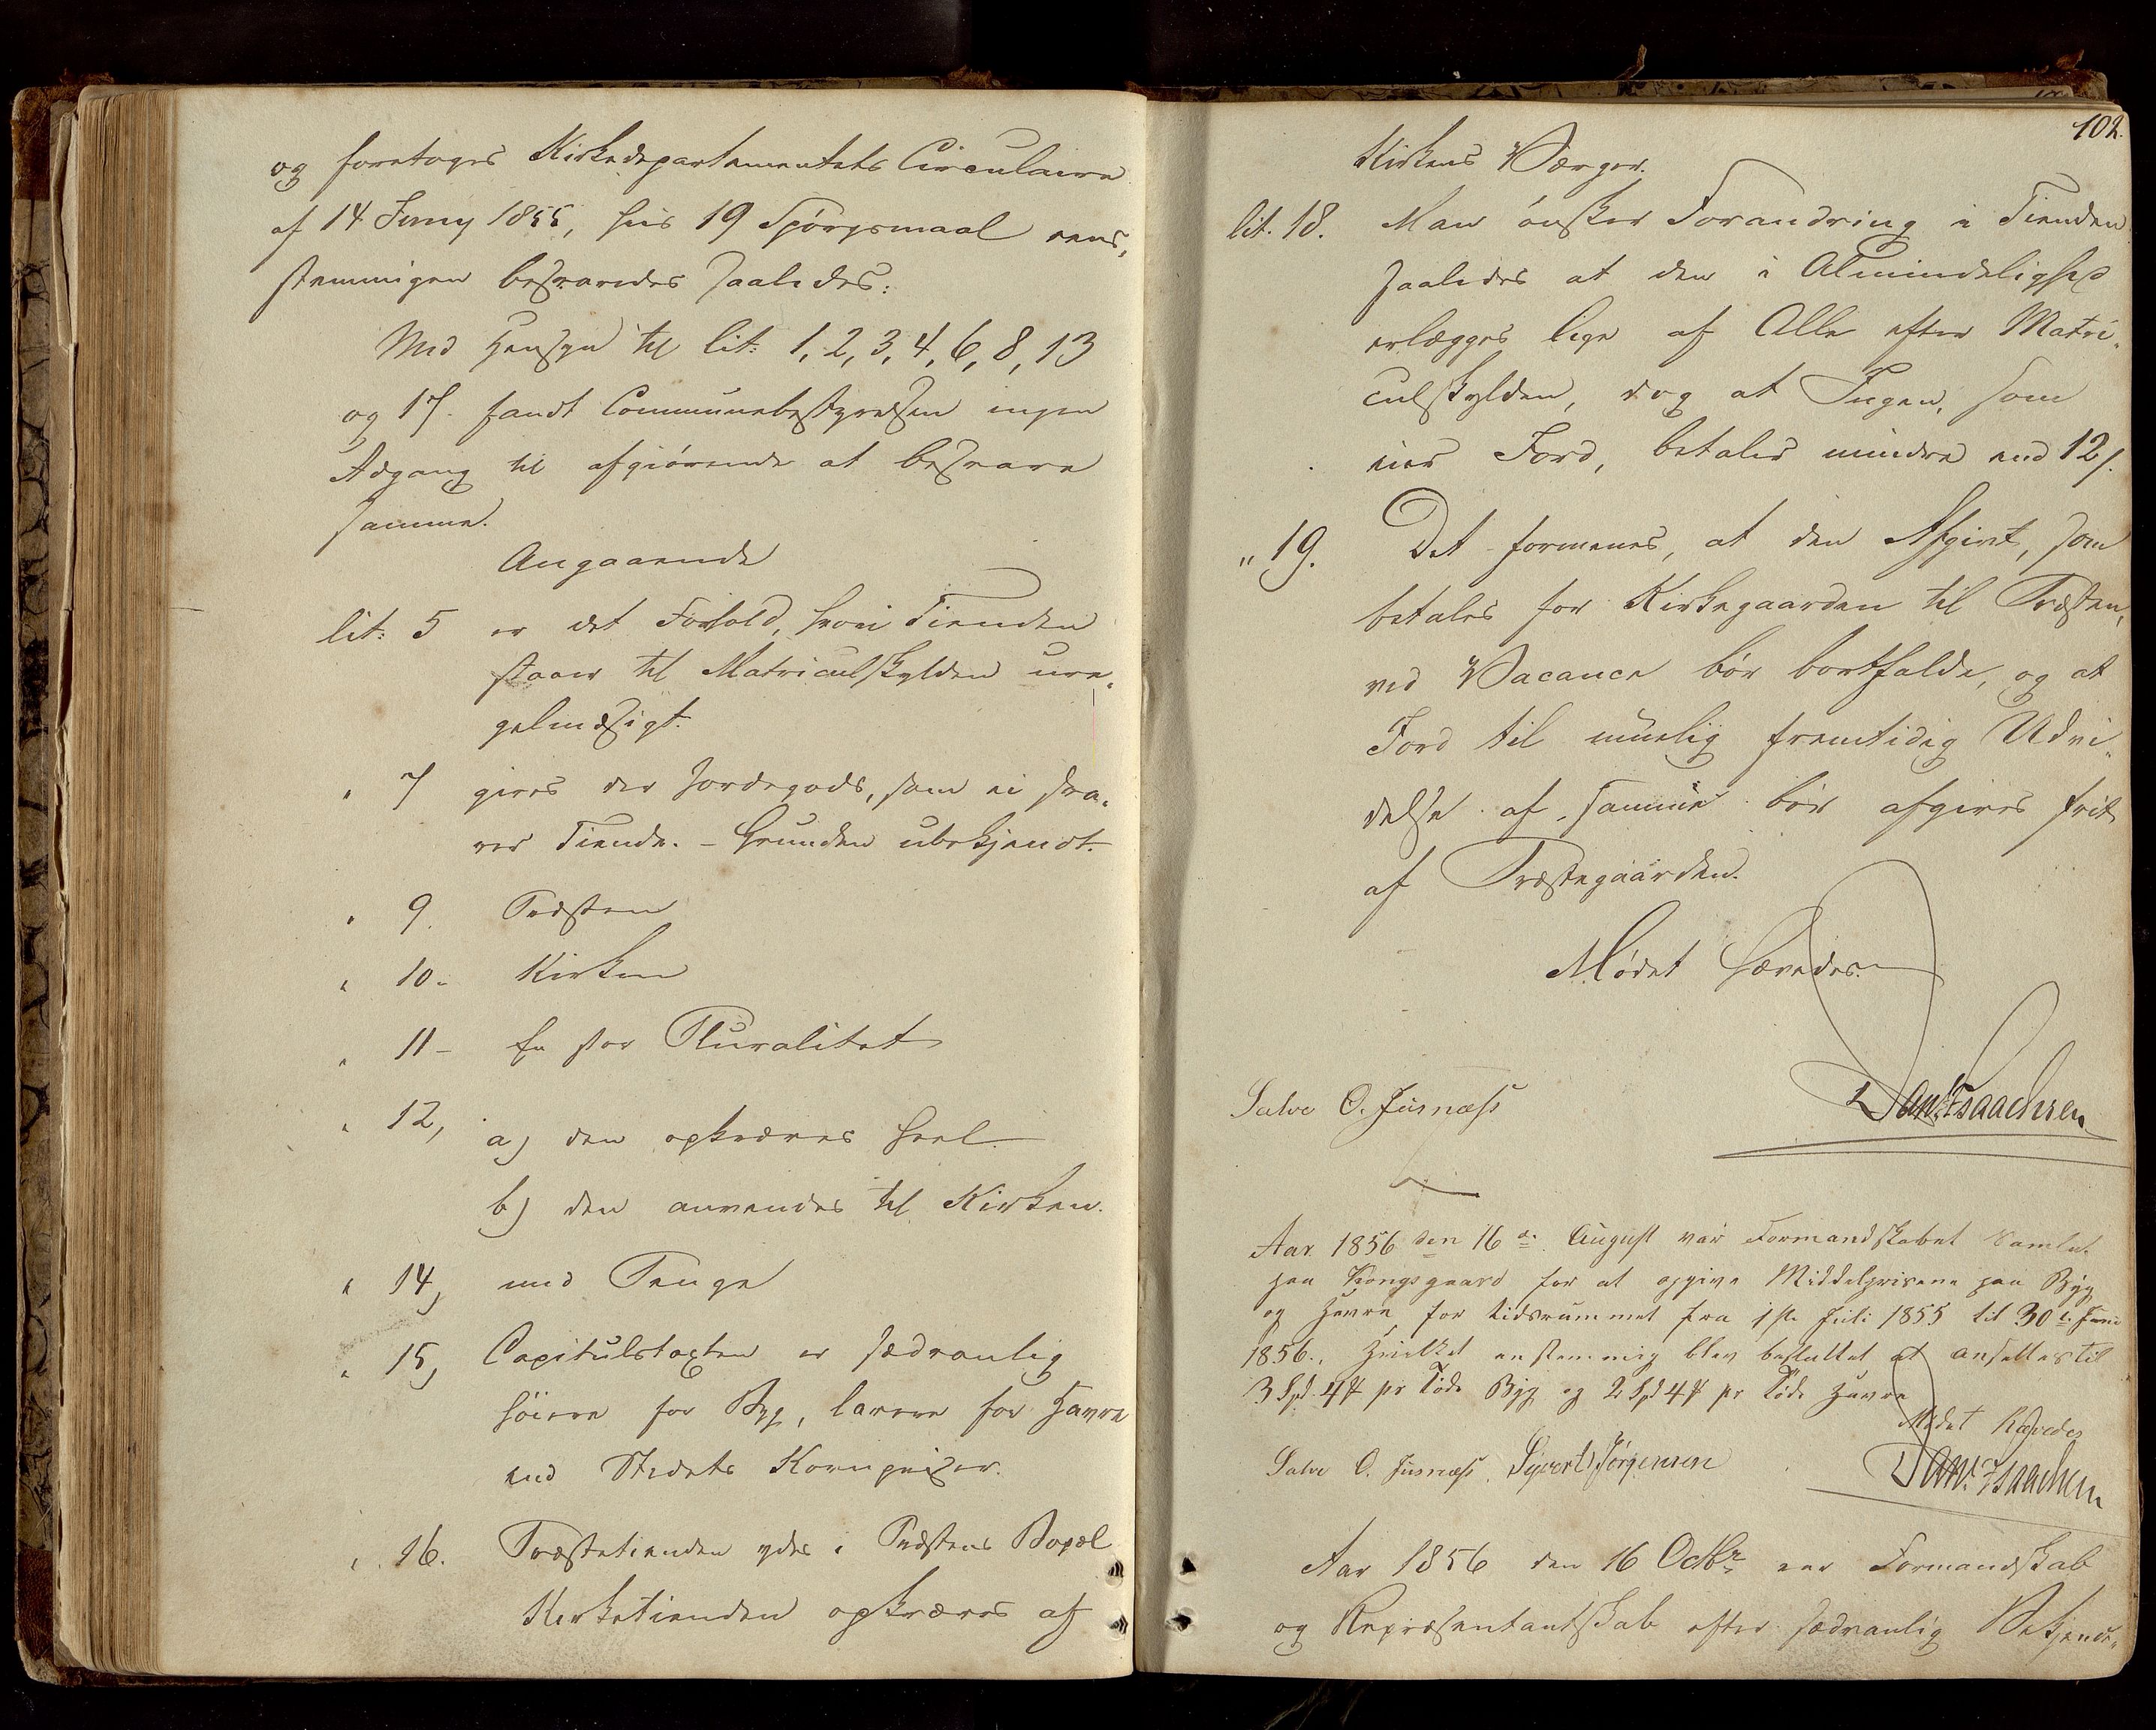 og foretoges Kirkedepartementets Circulaire
af 14 Juny 1855, hvis 19 Spørgsmaal eens,
stemmigen besvaredes saaledes:
Med Hensyn til lit: 1, 2, 3, 4, 6, 8, 13
og 17. fandt Communebestyrelsen ingen
Adgang til afgiörende at besvare
samme.
Angaaende
lit: 5 er det Forhold, hvori Tienden
staaer til Matriculskylden ure„
gelmæsigt.
„ 7 gives der Jordegods, som ei sva„
rer Tiende. – Grunden ubekjendt.
„ 9. Præsten
„ 10. Kirken
„ 11 – En stor Pluralitet
„ 12, a) den opkræves heel.
b) den anvendes til Kirken.
„ 14, med Penge
„ 15, Capitulstaxten er sædvanlig
höiere for Byg, lavere for Havre
end Stedets Kornpriser.
„ 16. Præstetienden ydes i Præstens Bopæl
Kirketienden opkræves af
102.
Kirkens Værger.
lit. 18. Man önsker Forandring i Tienden
saaledes at den i Almindelighed
erlægges lige af Alle efter Matri„
culskylden, dog at Ingen, som
eier Jord, betaler mindre end 12 s.
„ 19. Det formenes, at den Afgivt, som
betales for Kirkegaarden til Præsten,
ved Vacance bör bortfalde, og at
Jord til muelig fremtidig Udvi„
delse af samme bör afgives frit
af Præstegaarden.
Mödet hævedes.
Salve O. Jusnæss Dan. Isaachsen
Aar 1856 den 16de August var Formandskabet samlet
paa Kongsgaard for at opgive Middelprisene paa Byg
og Havre for tidsrummet fra 1ste Juli 1855 til 30te Juni
1856., Hvilket enstemmig blev besluttet at ansettes til
3 Spd. 4 # pr Töde Byg og 2 Spd 4 # pr Töde Havre
Mödet hævedes
Salve O. Jusnæss. Sÿvert Jörgensen Dan. Isaachsen
Aar 1856 den 16 Octbr var Formandskab
og Repræsentantskab efter sædvanlig Bekjendt„